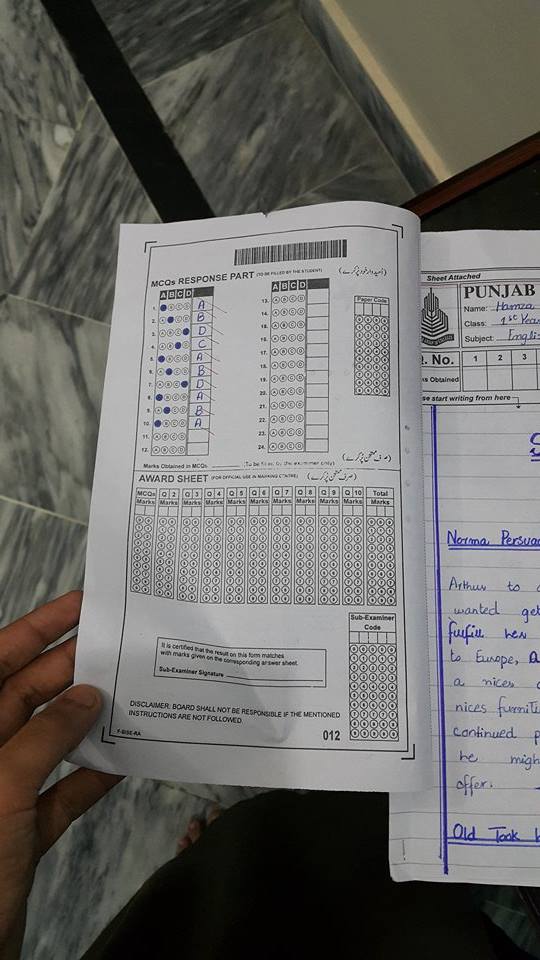 MCQs RESPONSE PART (TO BE FILLED BY THE STUDENT) (امیدوار خود پُر کرے)
A B C D
1. A B C D A
2. A B C D B
3. A B C D D
4. A B C D C
5. A B C D A
6. A B C D B
7. A B C D D
8. A B C D A
9. A B C D B
10. A B C D A
11. A B C D
12. A B C D
A B C D
13. A B C D
14. A B C D
15. A B C D
16. A B C D
17. A B C D
18. A B C D
19. A B C D
20. A B C D
21. A B C D
22. A B C D
23. A B C D
24. A B C D
Paper Code
Marks Obtained in MCQs. (To be filled by the examiner only) (صرف ممتحن پُر کرے)
AWARD SHEET (FOR OFFICIAL USE IN MARKING CENTRE) (صرف ممتحن پُر کرے)
MCQs Q 2 Q 3 Q 4 Q 5 Q 6 Q 7 Q 8 Q 9 Q 10 Total
Marks Marks Marks Marks Marks Marks Marks Marks Marks Marks Marks
Sub-Examiner
Code
It is certified that the result on this form matches
with marks given on the corresponding answer sheet.
Sub-Examiner Signature
DISCLAIMER: BOARD SHALL NOT BE RESPONSIBLE IF THE MENTIONED
INSTRUCTIONS ARE NOT FOLLOWED.
F-BISE-RA
012
Sheet Attached
PUNJAB
Name: Hamza
Class: 1st Year
Subject: Engli
No. 1 2 3
Obtained
se start writing from here
Norma Persua
Arthur to
wanted get
fulfill her
to Europe,
a nices
nices furnit
continued p
he migh
offer.
Old Took